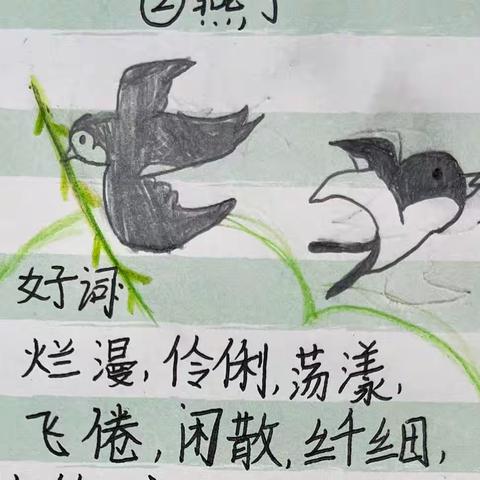 ②燕子
好词
烂漫,伶俐,荡漾,
飞倦,闲散,纤细,